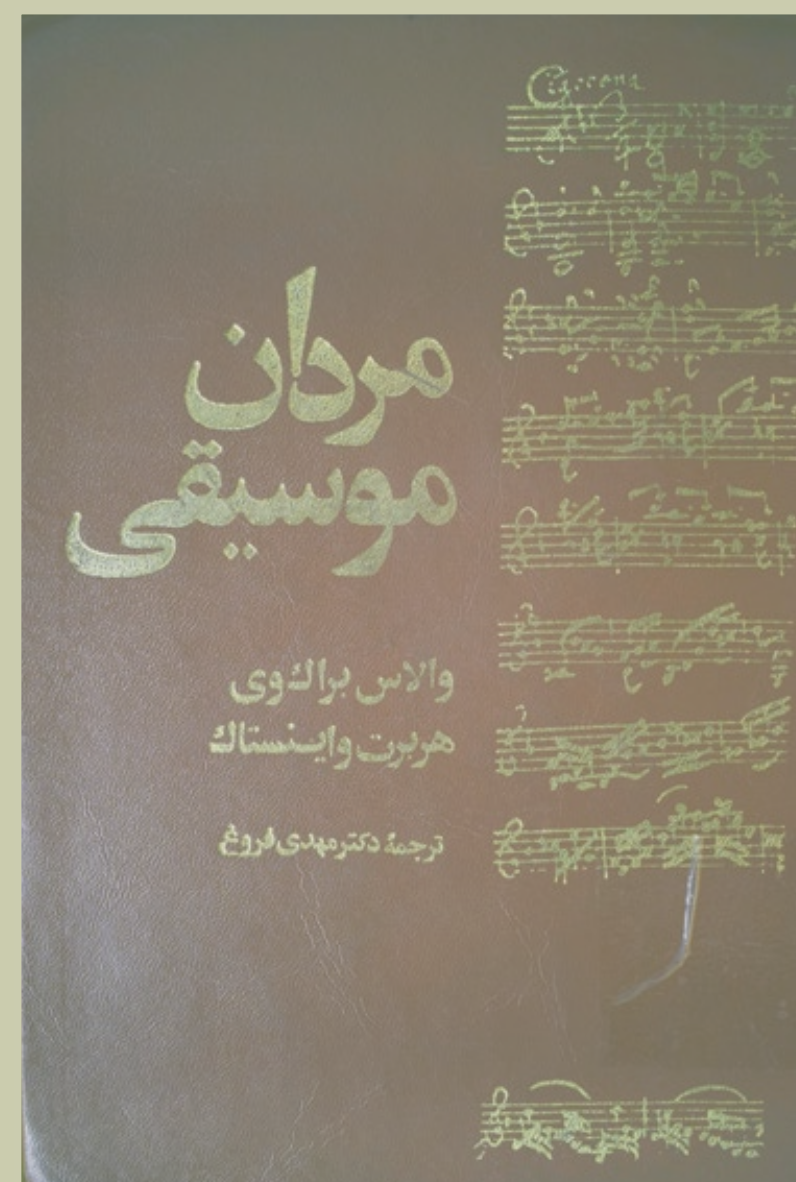 Ciaccona
مردان
موسیقی
والاس براك‌وی
هربرت واینستاك
ترجمهٔ دکتر مهدی فروغ